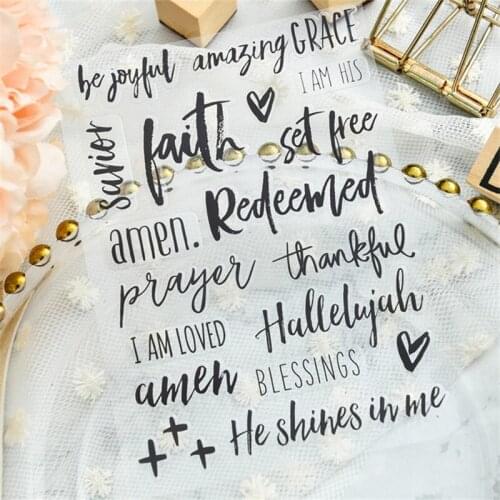 be joyful amazing GRACE
I AM HIS
savior
faith set free
amen. Redeemed
prayer thankful
I AM LOVED Hallelujah
amen BLESSINGS
He shines in me